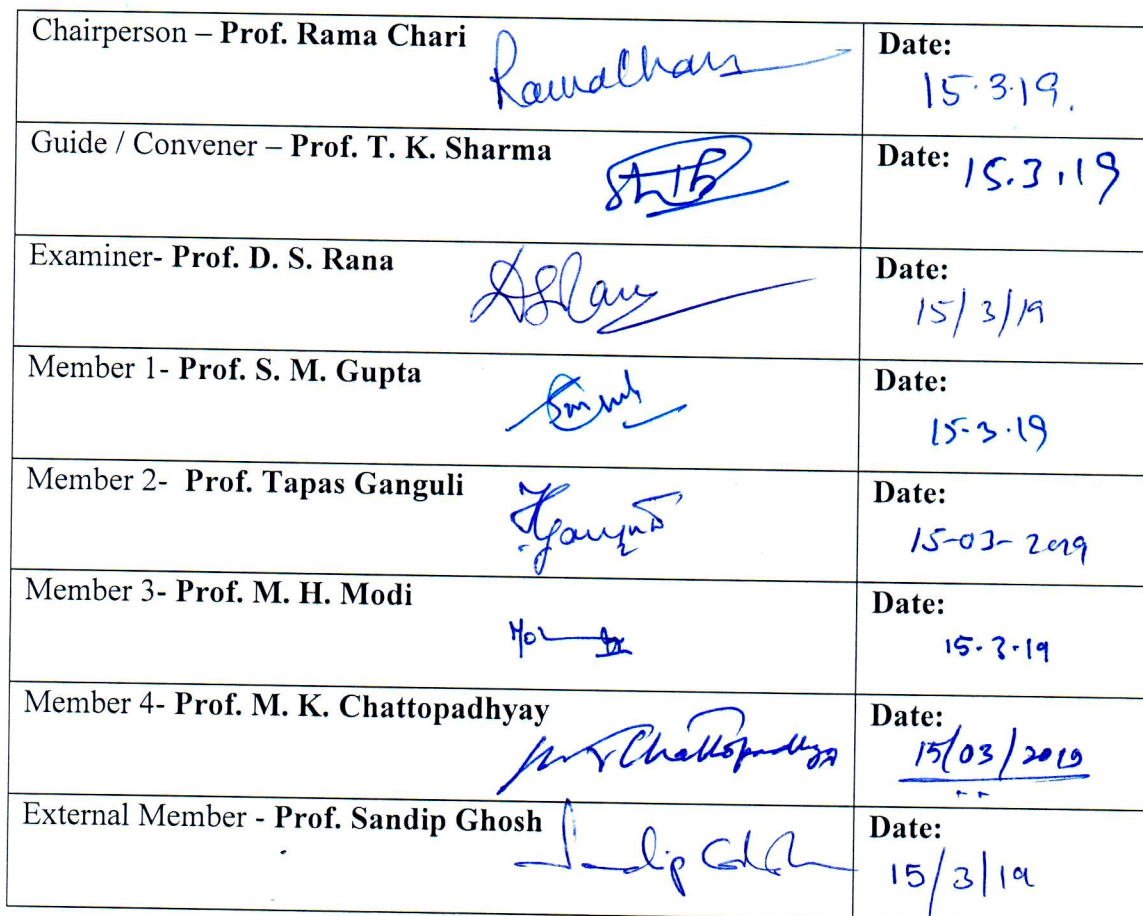 Chairperson – Prof. Rama Chari
RamaChari
Date:
15.3.19.
Guide / Convener – Prof. T. K. Sharma
Date: 15.3.19
Examiner- Prof. D. S. Rana
DSRana
Date:
15/3/19
Member 1- Prof. S. M. Gupta
Date:
15-3-19
Member 2- Prof. Tapas Ganguli
Date:
15-03-2019
Member 3- Prof. M. H. Modi
Date:
15.3.19
Member 4- Prof. M. K. Chattopadhyay
Chattopadhyay
Date:
15/03/2019
External Member - Prof. Sandip Ghosh
Sandip Ghosh
Date:
15/3/19